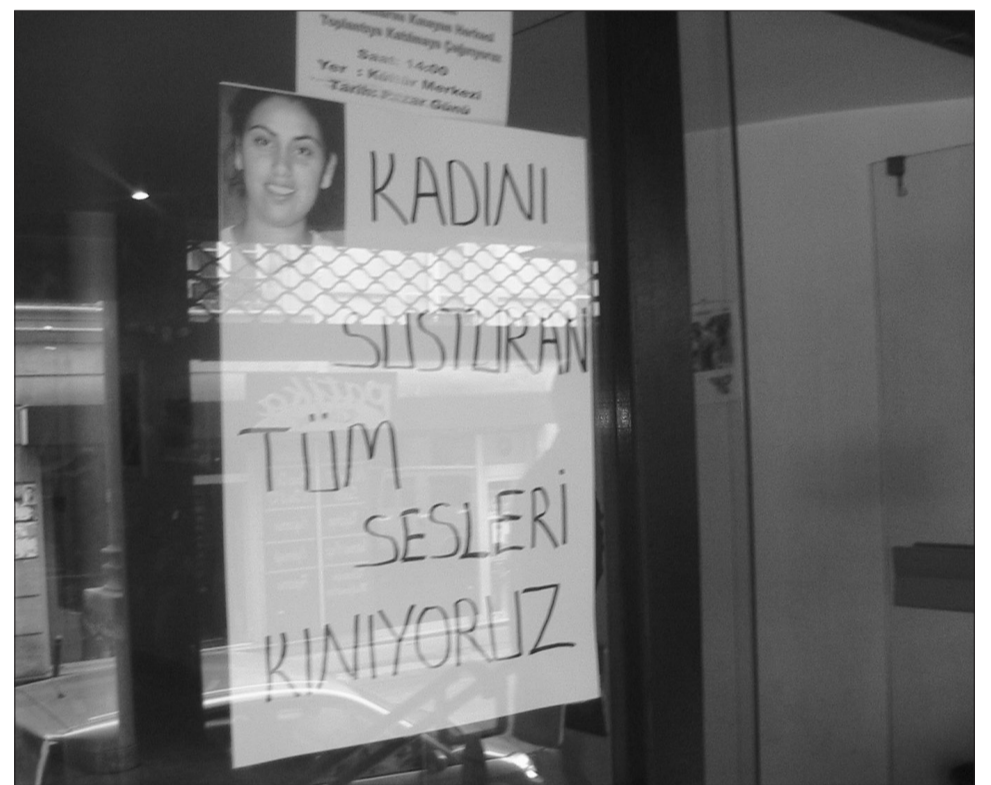 Toplantıya Katılmaya Çağırıyoruz
Saat: 14:00
Yer : Kültür Merkezi
Tarih: Pazar Günü
KADINI
SUSTURAN
TÜM
SESLERİ
KINIYORUZ
Patika